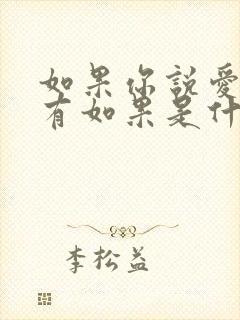 如果你說愛
有如果是什
李松益